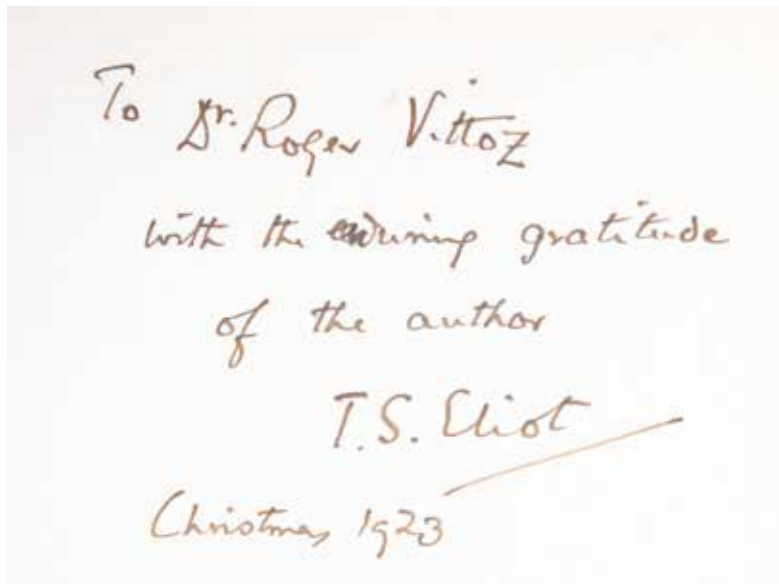 To Dr. Roger Vittoz
with the enduring gratitude
of the author
T.S. Eliot
Christmas 1923